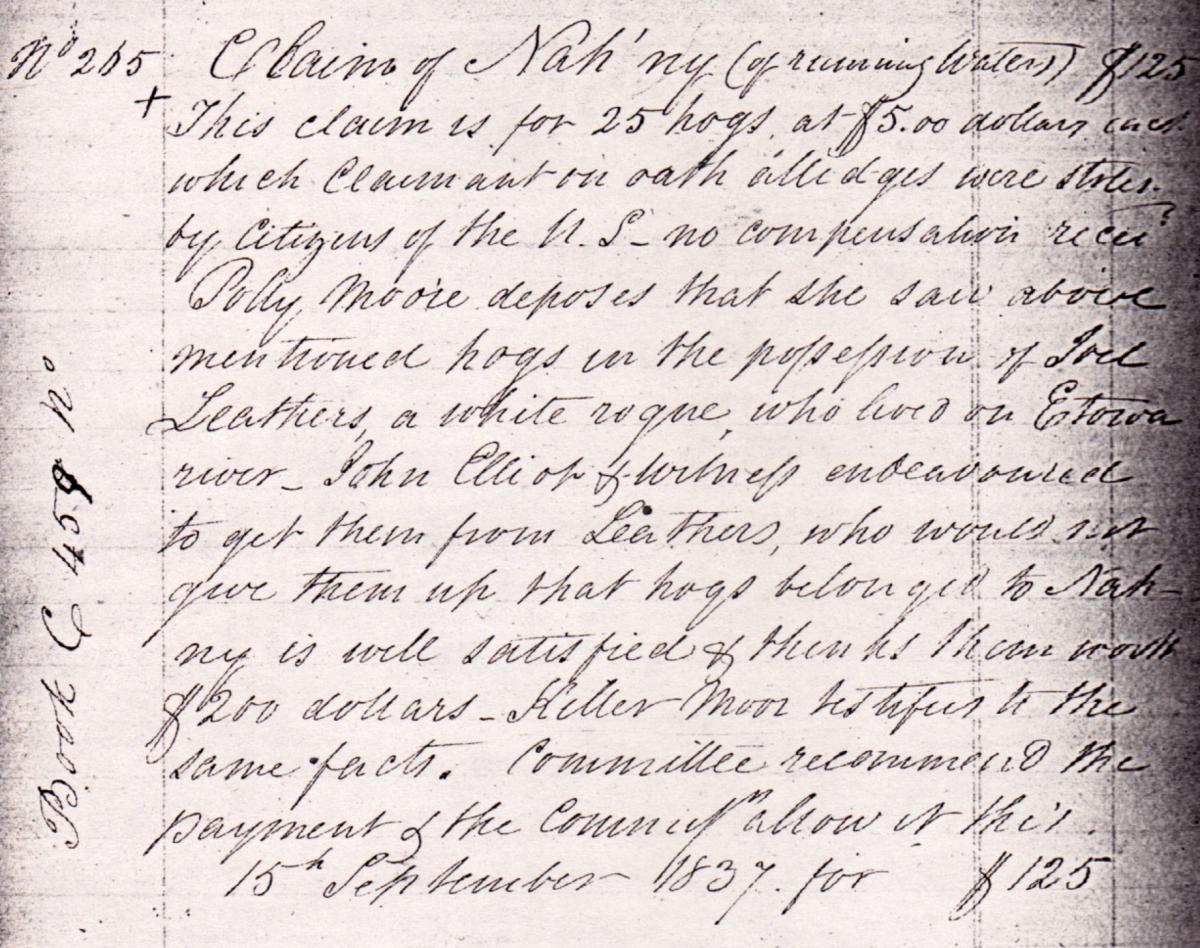 No 265 Claim of Nah'ny (of running Waters) $125
+ This claim is for 25 hogs at $5.00 dollars each
which Claimant on oath alledges were stolen
by Citizens of the U. S - no compensation recei
Polly Moore deposes that she saw above
mentioned hogs in the possession of Joel
Leathers, a white rogue, who lived on Etowa
river - John Elliot & witness endeavoured
to get them from Leathers, who would not
give them up that hogs belonged to Nah-
ny is well satisfied & thinks them worth
$200 dollars - Killer Moor testifies to the
same facts. Committee recommend the
payment & the Commissrs allow it this
15th September 1837. for $125
Book C 459 No